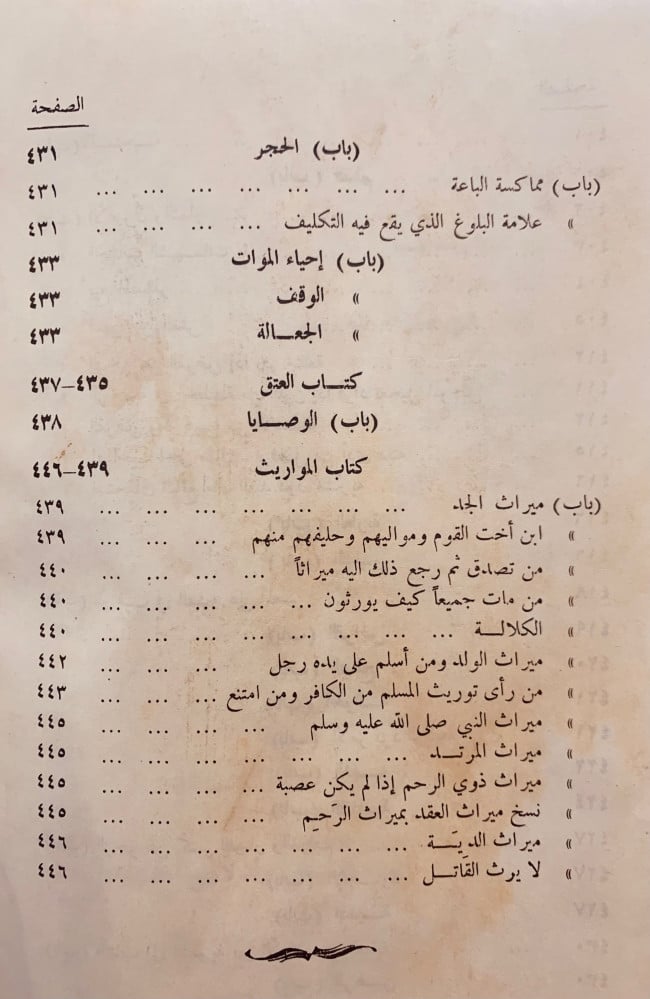 الصفحة
(باب) الحجر ٤٣١
(باب) مماكسة الباعة ... ... ... ... ... ... ... ٤٣١
» علامة البلوغ الذي يقع فيه التكليف ... ... ... ... ٤٣١
(باب) إحياء الموات ٤٣٣
» الوقف ٤٣٣
» الجعـــالة ٤٣٣
كتـــاب العتق ٤٣٥–٤٣٧
(باب) الوصـــايا ٤٣٨
كتاب المواريث ٤٣٩–٤٤٦
(باب) ميراث الجد ... ... ... ... ... ... ... ٤٣٩
» ابن أخت القوم ومواليهم وحليفهم منهم ... ... ... ٤٣٩
» من تصدق ثم رجع ذلك اليه ميراثاً ... ... ... ... ٤٤٠
» من مات جميعاً كيف يورثون ... ... ... ... ... ٤٤٠
» الكلالـــة ... ... ... ... ... ... ... ... ٤٤٠
» ميراث الولد ومن أسلم على يده رجل ... ... ... ٤٤٢
» من رأى توريث المسلم من الكافر ومن امتنع ... ... ... ٤٤٣
» ميراث النبي صلى الله عليه وسلم ... ... ... ... ٤٤٥
» ميراث المرتـــد ... ... ... ... ... ... ... ٤٤٥
» ميراث ذوي الرحم إذا لم يكن عصبة ... ... ... ... ٤٤٥
» نسخ ميراث العقد بميراث الرَحيم ... ... ... ... ٤٤٥
» ميراث الديَـــة ... ... ... ... ... ... ... ٤٤٦
» لا يرث القَاتـــل ... ... ... ... ... ... ... ٤٤٦